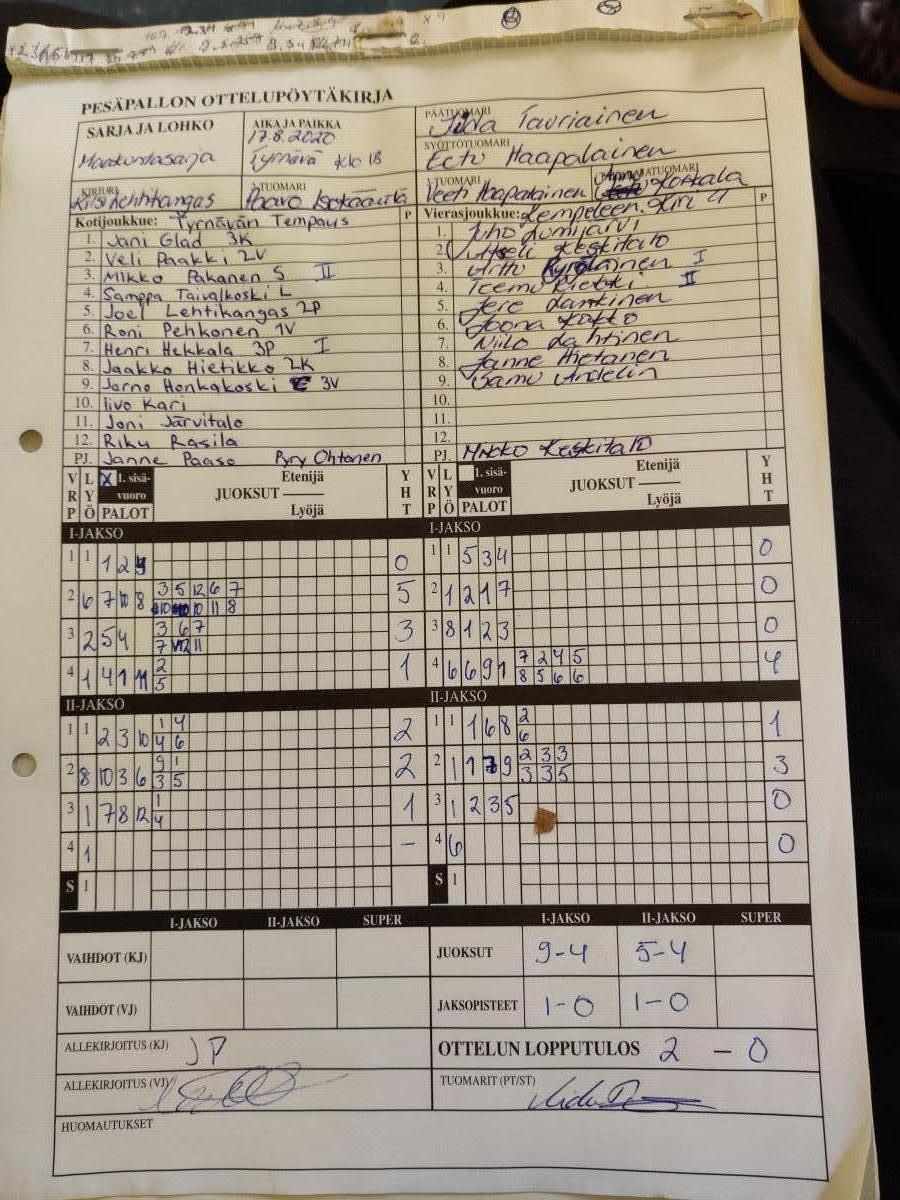 PESÄPALLON OTTELUPÖYTÄKIRJA
SARJA JA LOHKO
Maakuntasarja
AIKA JA PAIKKA
17.8.2020
Tyrnävä klo 18
PÄÄTUOMARI
Tauriainen
SYÖTTÖTUOMARI
Eetu Haapalainen
KIRJURI
Lehtikangas
Paavo
Veeti Haapalainen
Kotijoukkue: Tyrnävän Tempaus P
1. Jani Glad 3K
2. Veli Paakki 2V
3. Mikko Pakanen S II
4. Samppa Taivalkoski L
5. Joel Lehtikangas 2P
6. Roni Pehkonen 1V
7. Henri Hekkala 3P I
8. Jaakko Hietikko 2K
9. Jarno Honkakoski 3V
10. Iivo Kari
11. Joni Järvitalo
12. Riku Rasila
PJ. Janne Paaso Pyry Ohtonen
Vierasjoukkue: Lempeleen Kiri P
1. Juho Lumijärvi
2. Keskitalo
3. Arttu I
4. Teemu II
5. Jere
6. Joona Kokko
7. Niilo Lahtinen
8. Janne Hietanen
9. Samu Andelin
10.
11.
12.
PJ. Mikko Keskitalo
VRP LYÖ X 1. sisävuoro PALOT Etenijä JUOKSUT Lyöjä YHT
I-JAKSO
1 1 1 2 0
2 6 7 10 8 3 5 12 6 7 5
10 11 8
3 2 5 4 3 6 7 3
7 11
4 1 4 7 11 2 1
5
II-JAKSO
1 1 2 3 10 1 4 2
4 6
2 8 10 3 6 9 1 2
3 5
3 1 7 8 12 1 1
4
4 1 –
S 1
VRP LYÖ 1. sisävuoro PALOT Etenijä JUOKSUT Lyöjä YHT
I-JAKSO
1 1 5 3 4 0
2 1 2 1 7 0
3 8 1 2 3 0
4 6 6 9 1 7 2 4 5 4
8 5 6 6
II-JAKSO
1 1 1 6 8 2 1
6
2 1 1 9 2 3 3 3
3 3 5
3 1 2 3 5 0
4 6 0
S 1
I-JAKSO II-JAKSO SUPER
VAIHDOT (KJ)
VAIHDOT (VJ)
I-JAKSO II-JAKSO SUPER
JUOKSUT 9-4 5-4
JAKSOPISTEET 1-0 1-0
ALLEKIRJOITUS (KJ) JP
OTTELUN LOPPUTULOS 2 – 0
ALLEKIRJOITUS (VJ)
TUOMARIT (PT/ST)
HUOMAUTUKSET